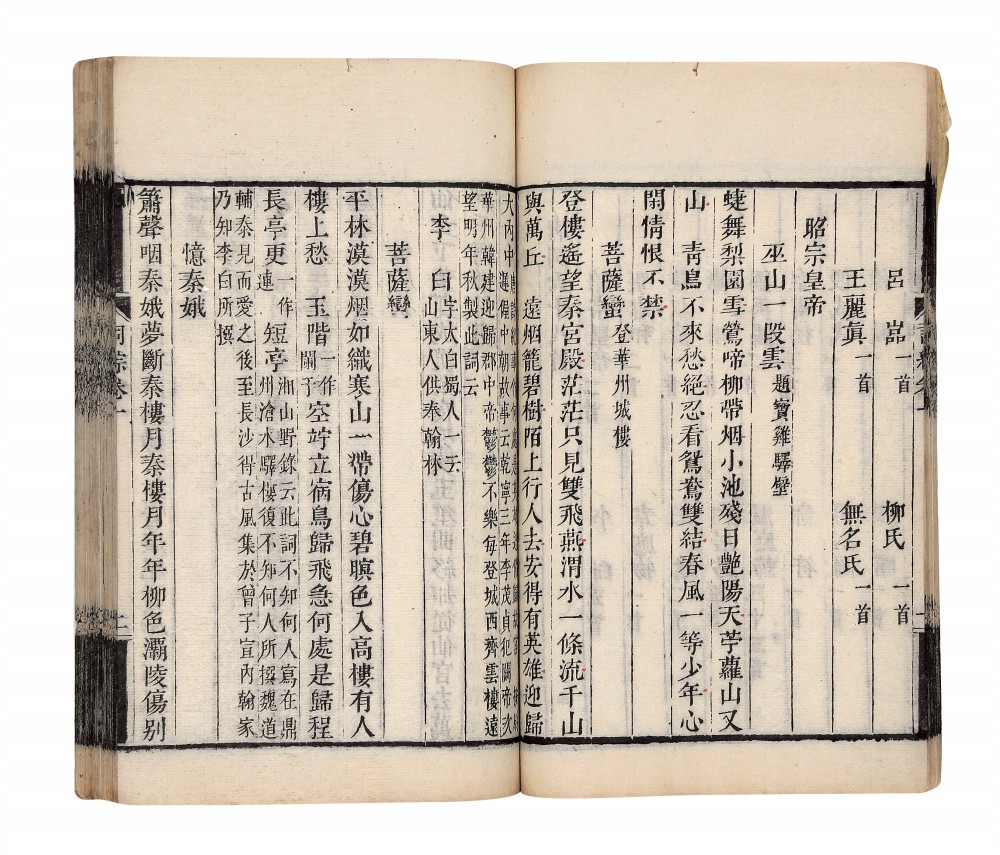 呂嵓一首 柳氏一首
王麗眞一首 無名氏一首
昭宗皇帝
巫山一段雲題寶雞驛壁
蜨舞梨園雪鶯啼柳帶烟小池殘日艷陽天苧蘿山又
山 青鳥不來愁絕忍看鴛鴦雙結春風一等少年心
閑情恨不禁
菩薩蠻登華州城樓
登樓遙望秦宮殿茫茫只見雙飛燕渭水一條流千山
與萬丘 遠烟籠碧樹陌上行人去安得有英雄迎歸
大內中
中朝故事云乾寧三年李茂貞犯闕帝次
華州韓建迎歸郡中帝鬱鬱不樂每登城西齊雲樓遠
望明年秋製此詞云
李白字太白蜀人一云
山東人供奉翰林
菩薩蠻
平林漠漠烟如織寒山一帶傷心碧暝色入高樓有人
樓上愁 玉階一作闌干空竚立宿鳥歸飛急何處是歸程
長亭更一作連短亭湘山野錄云此詞不知何人寫在鼎
州滄水驛樓復不知何人所撰魏道
輔泰見而愛之後至長沙得古風集於曾子宣內翰家
乃知李白所撰
憶秦娥
簫聲咽秦娥夢斷秦樓月秦樓月年年柳色灞陵傷别
詞綜卷一